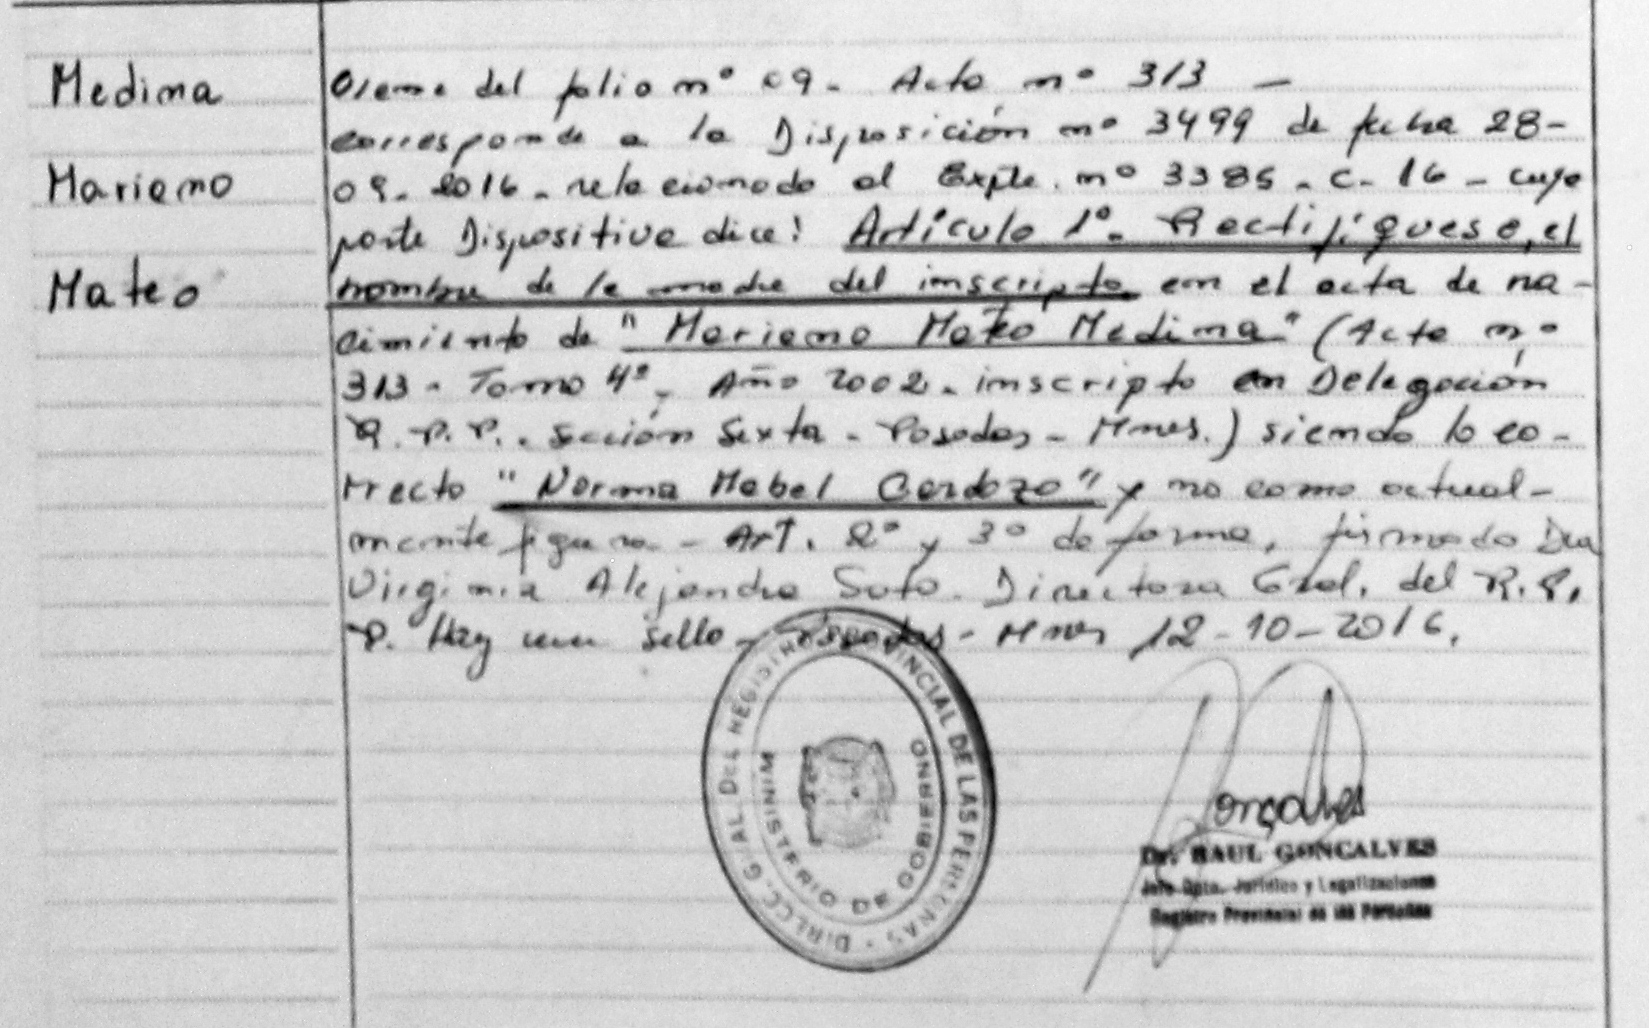 Medina
Mariano
Mateo
Viene del folio nº 69 - Acta nº 313 -
corresponde a la Disposición nº 3499 de fecha 28-
09-2016 - relacionado al Expte. nº 3385 - C - 16 - cuya
parte Dispositiva dice: Artículo 1º - Rectifíquese, el
nombre de la madre del inscripto en el acta de na-
cimiento de "Mariano Mateo Medina" (Acta nº
313 - Tomo 4º, Año 2002 - inscripto en Delegación
R.P.P. - Sección Sexta - Posadas - Mnes.) siendo lo co-
rrecto "Norma Mabel Cardozo" y no como actual-
mente figura - Art. 2º y 3º de forma, firmado Dra
Virginia Alejandra Soto - Directora Gral. del R.P.
P. Hay un sello - Posadas - Mnes 12-10-2016.
DIRECC. GRAL. DEL REGISTRO PROVINCIAL DE LAS PERSONAS -
MINISTERIO DE GOBIERNO
Gonçalves
Dr. RAUL GONCALVES
Jefe Dpto. Jurídico y Legalizaciones
Registro Provincial de las Personas